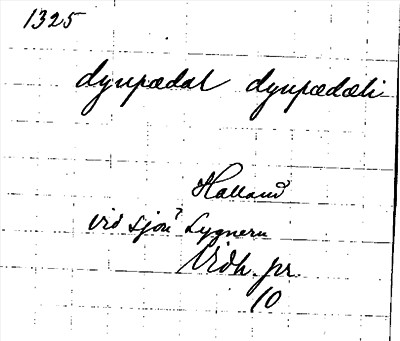 1325
dynpædal dynpædæli
Halland
vid sjön Lygnern
Vidh. pr.
10